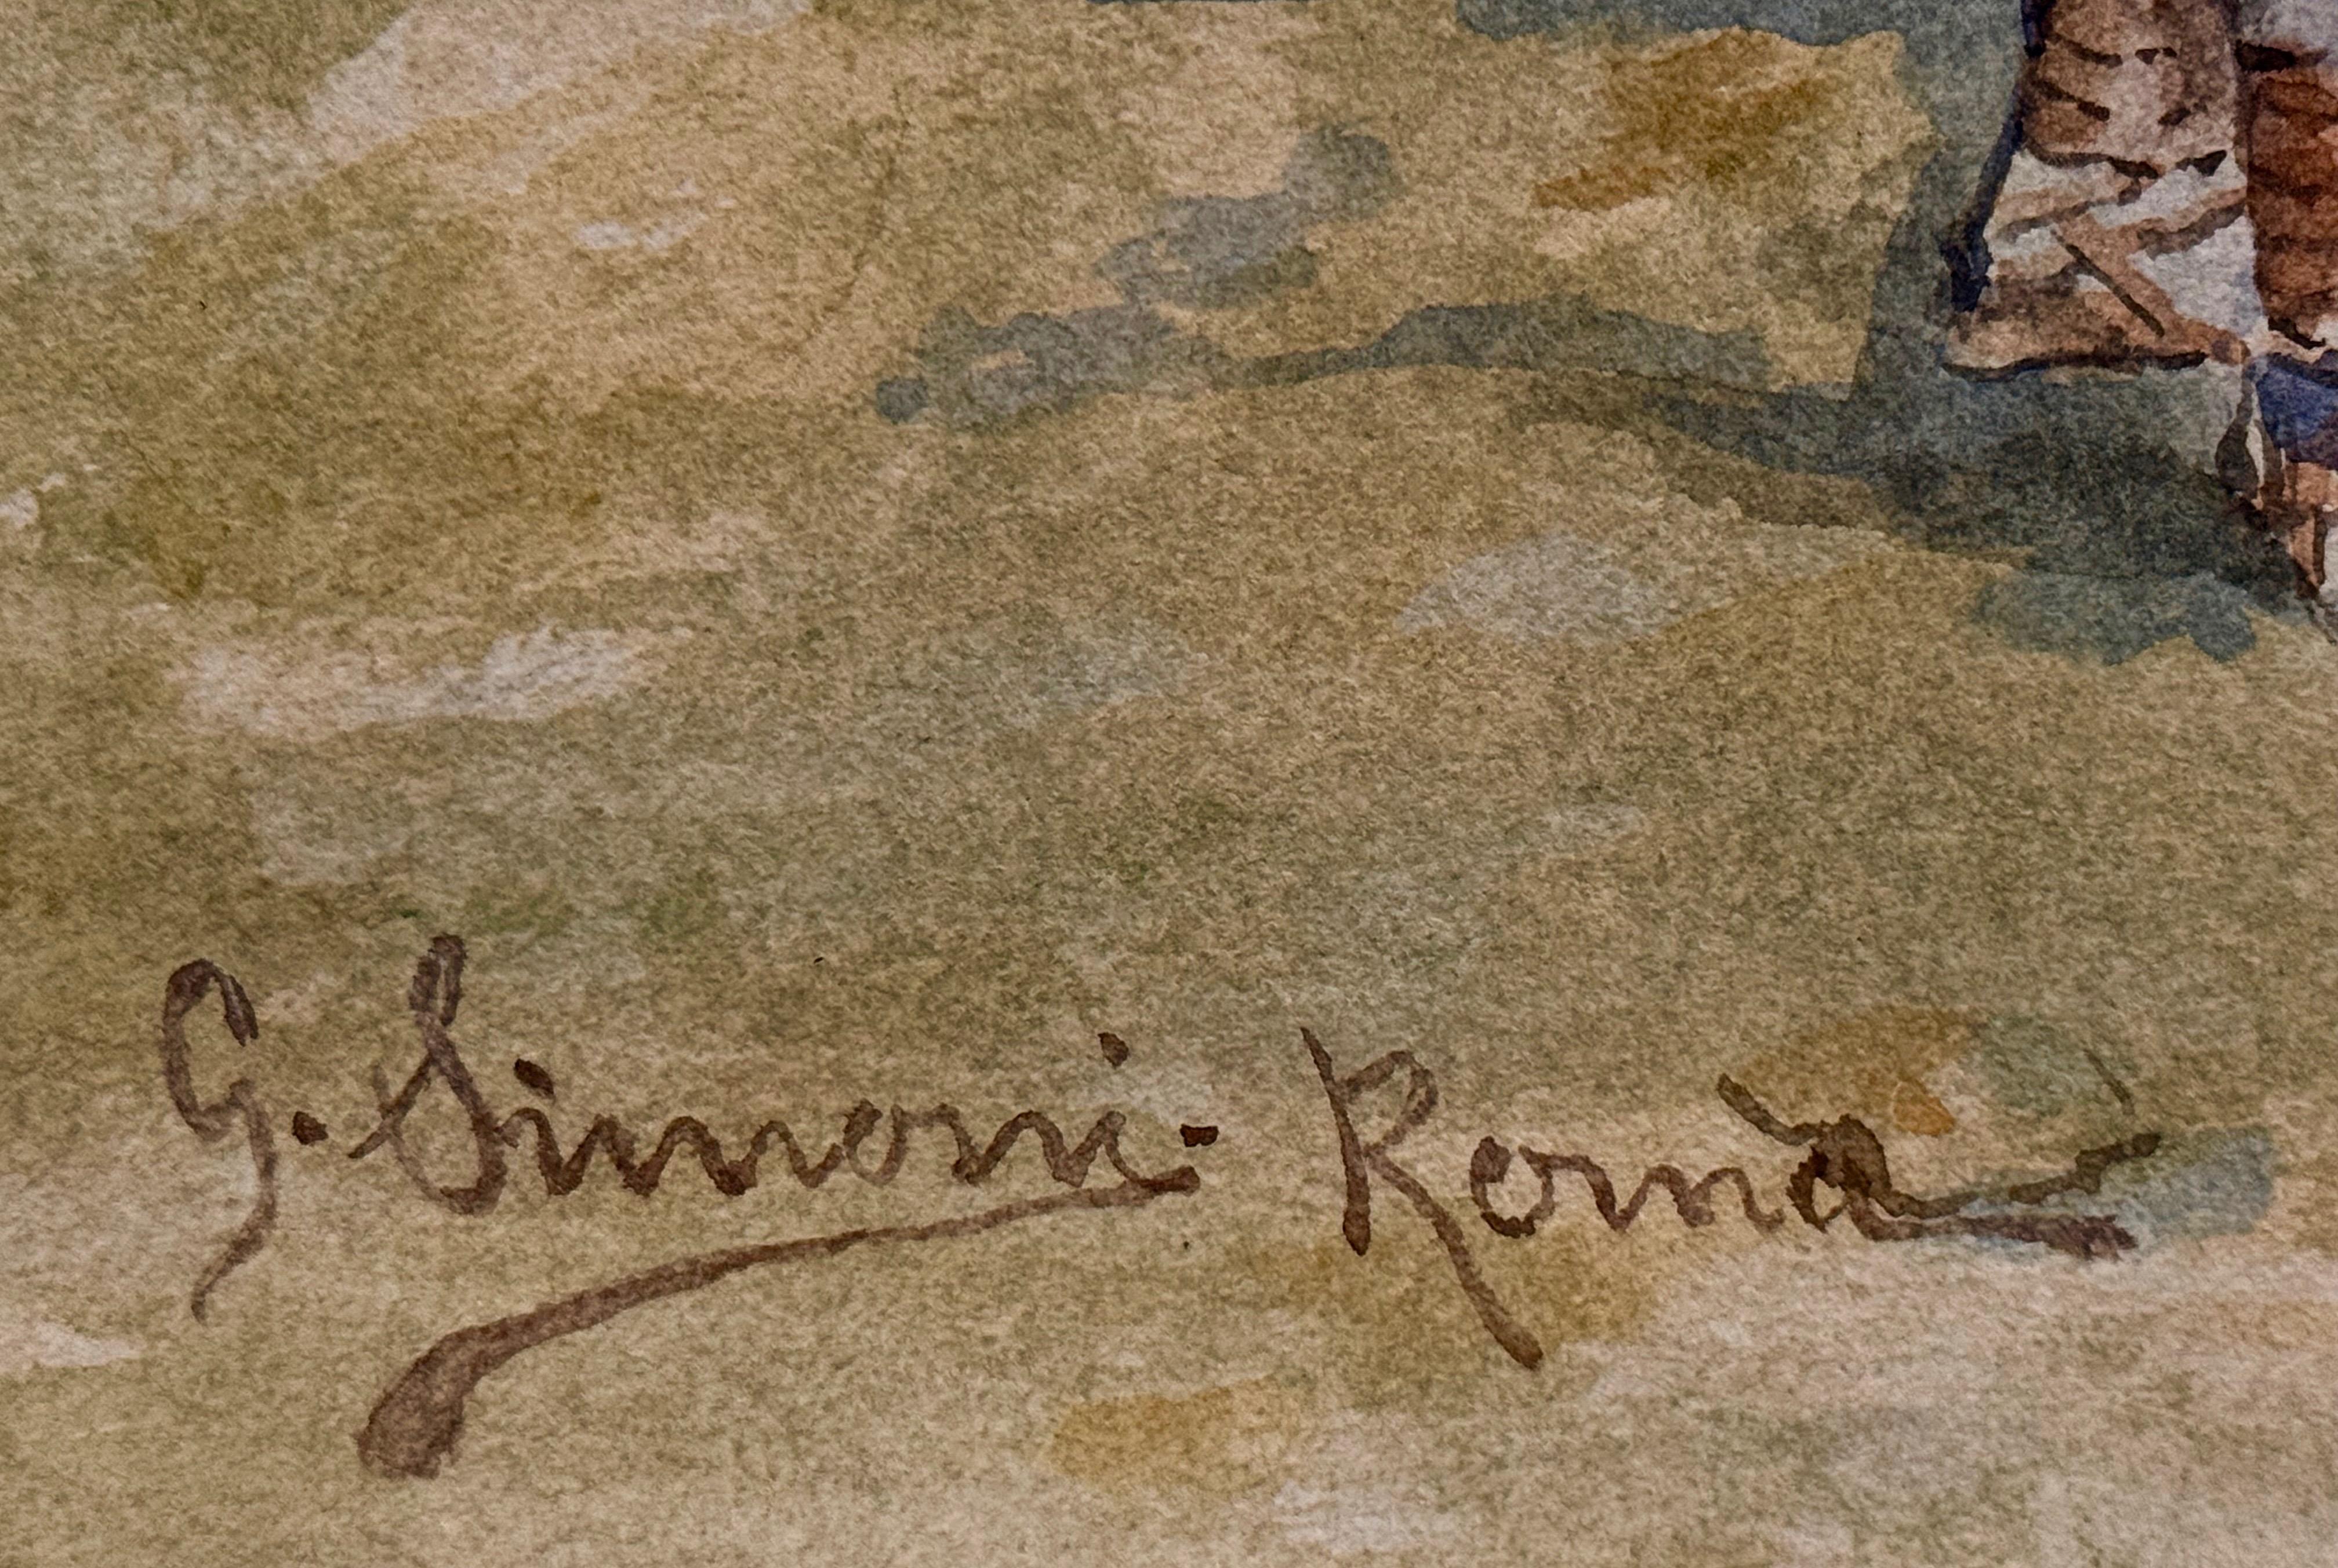 G. Simoni. Roma